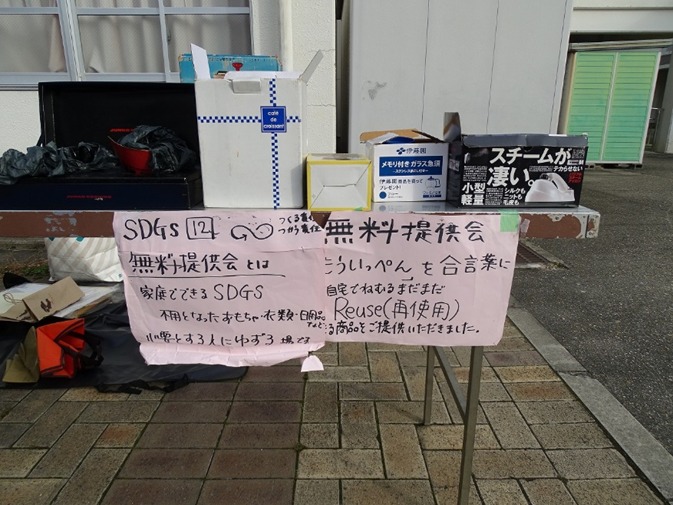 café de croissant
伊藤園
メモリ付きガラス急須
プレゼント!
スチームが
凄い。
テカらせない
小型
軽量
シルクも
ニットも
毛皮も。
SDGs 12 つくる責任
つかう責任
無料提供会とは
家庭でできるSDGS
不用となったおもちゃ・衣類・日用品などを
必要とする人にゆずる場です
無料提供会
もういっぺんを合言葉に
自宅でねむるまだまだ
Reuse(再使用)
る商品をご提供いただきました。